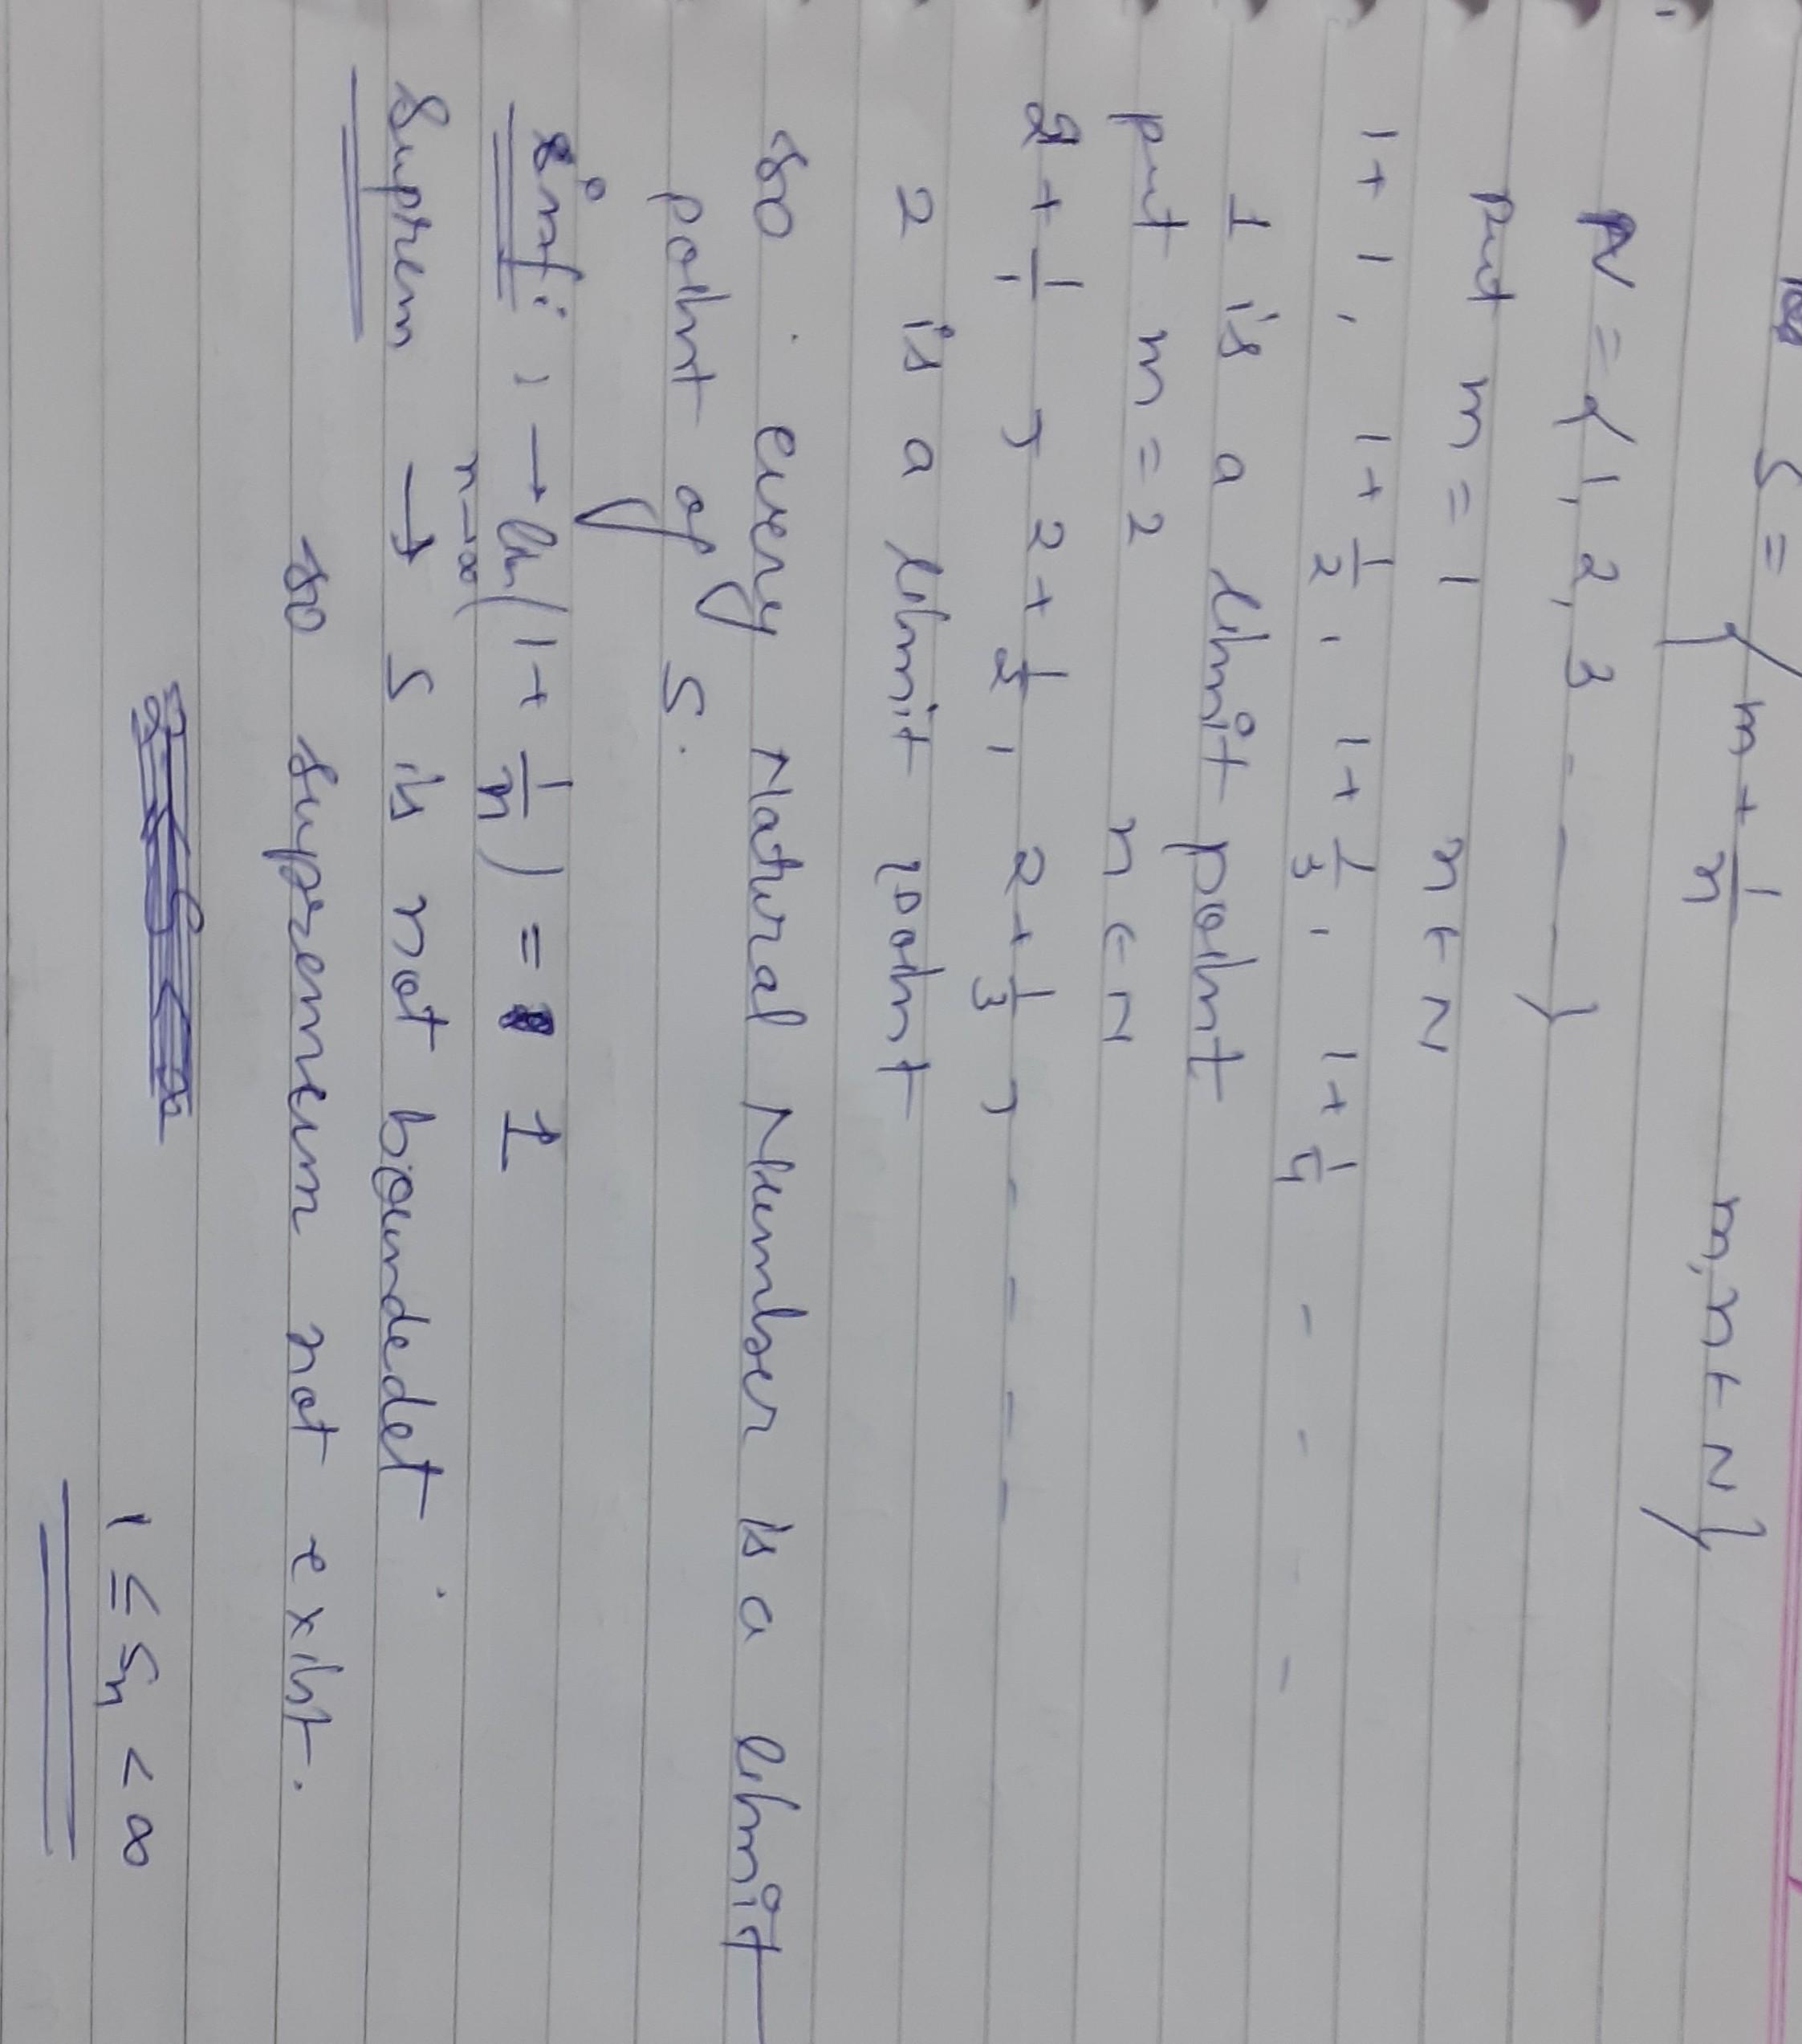 S = { m + 1/n m, n ∈ N }
N = { 1, 2, 3 - - - }
put m = 1 n ∈ N
1 + 1 , 1 + 1/2 , 1 + 1/3 , 1 + 1/4 - - - -
1 is a limit point
put m = 2 n ∈ N
2 + 1/1 , 2 + 1/2 , 2 + 1/3 , - - - -
2 is a limit point
so every Natural Number is a limit
point of S.
inf : 1 → lim n→∞ ( 1 + 1/n ) = 1
Suprem → S is not boundedet
so supremum not exist.
1 ≤ Sn < ∞